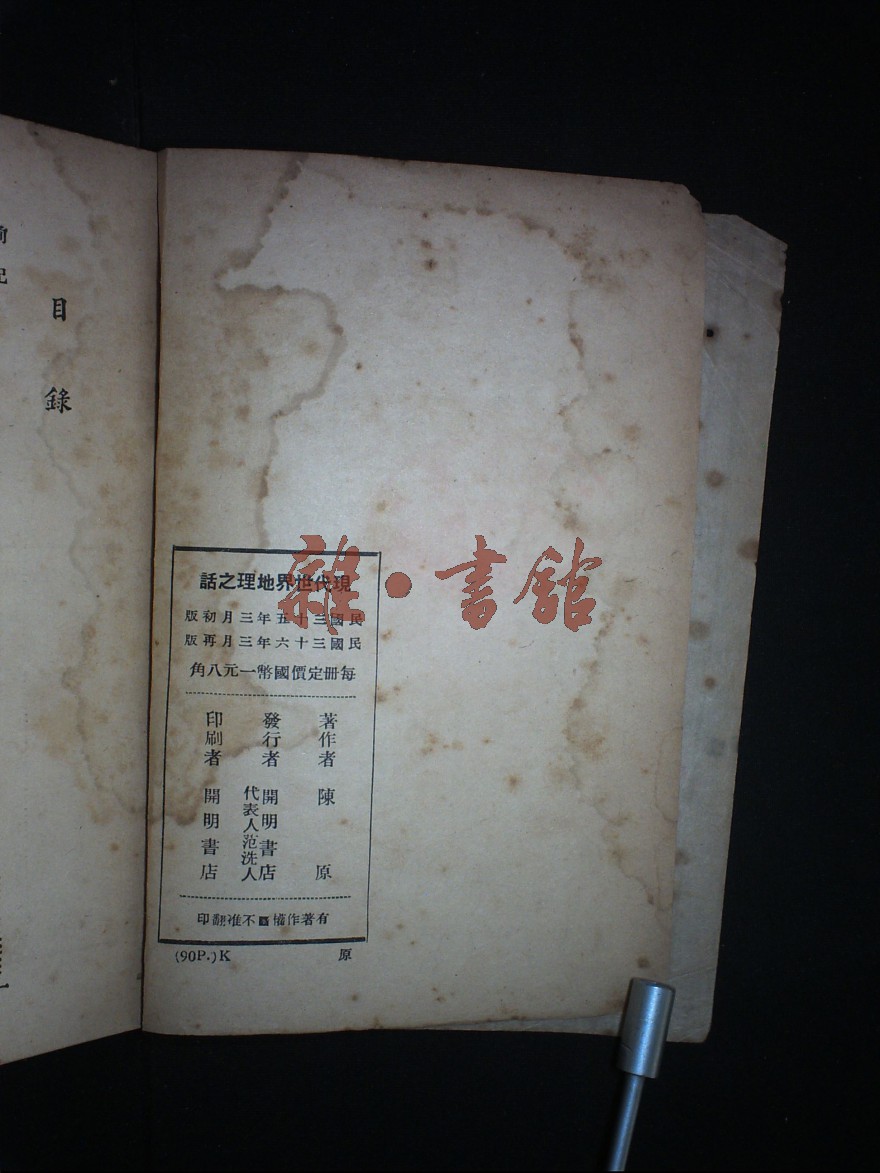 現代世界地理之話
民國三十五年三月初版
民國三十六年三月再版
每冊定價國幣一元八角
著作者 陳原
發行者 開明書店
代表人范洗人
印刷者 開明書店
有著作權不准翻印
(90P.)K 原
目錄
雜·書館